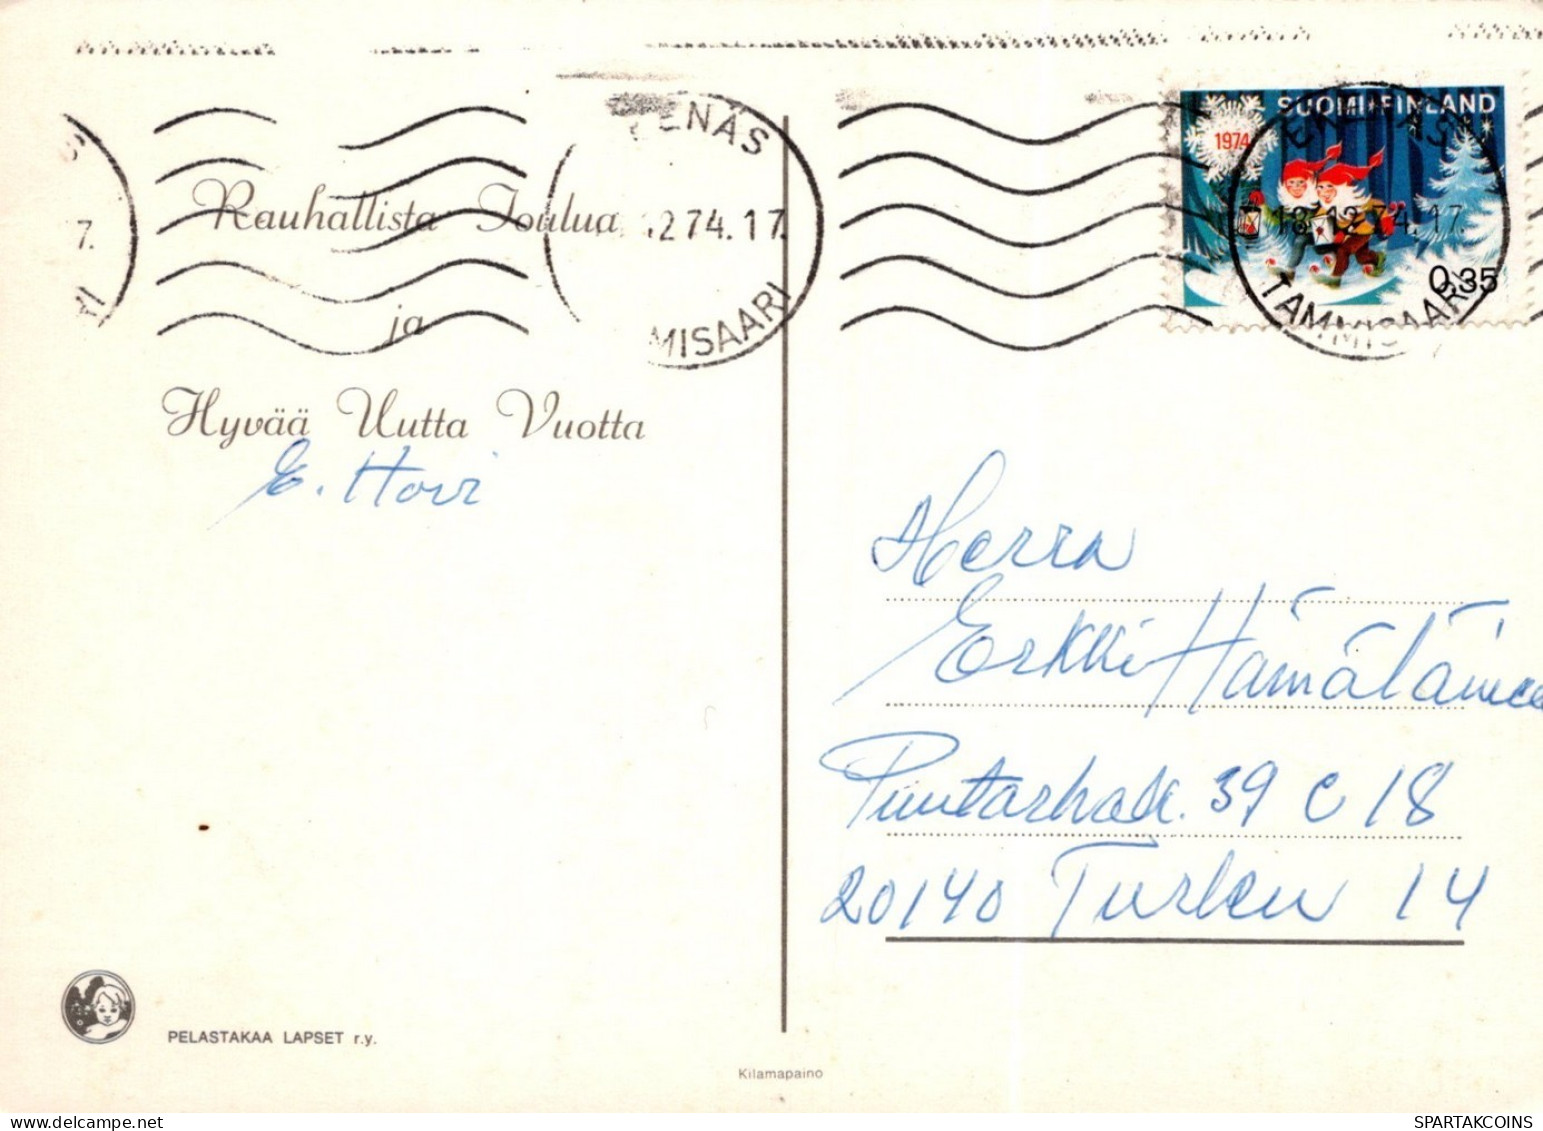 SUOMI-FINLAND
1974
0,35
EKENÄS
18.12.74.17.
TAMMISAARI
ENÄS
12.74.17.
MISAARI
7.
Rauhallista Joulua
ja
Hyvää Uutta Vuotta
E. Hovi
Herra
Erkki Hämäläinen
Puutarhak. 39 C 18
20140 Turku 14
PELASTAKAA LAPSET r.y.
Kilamapaino
SPARTAKCOINS